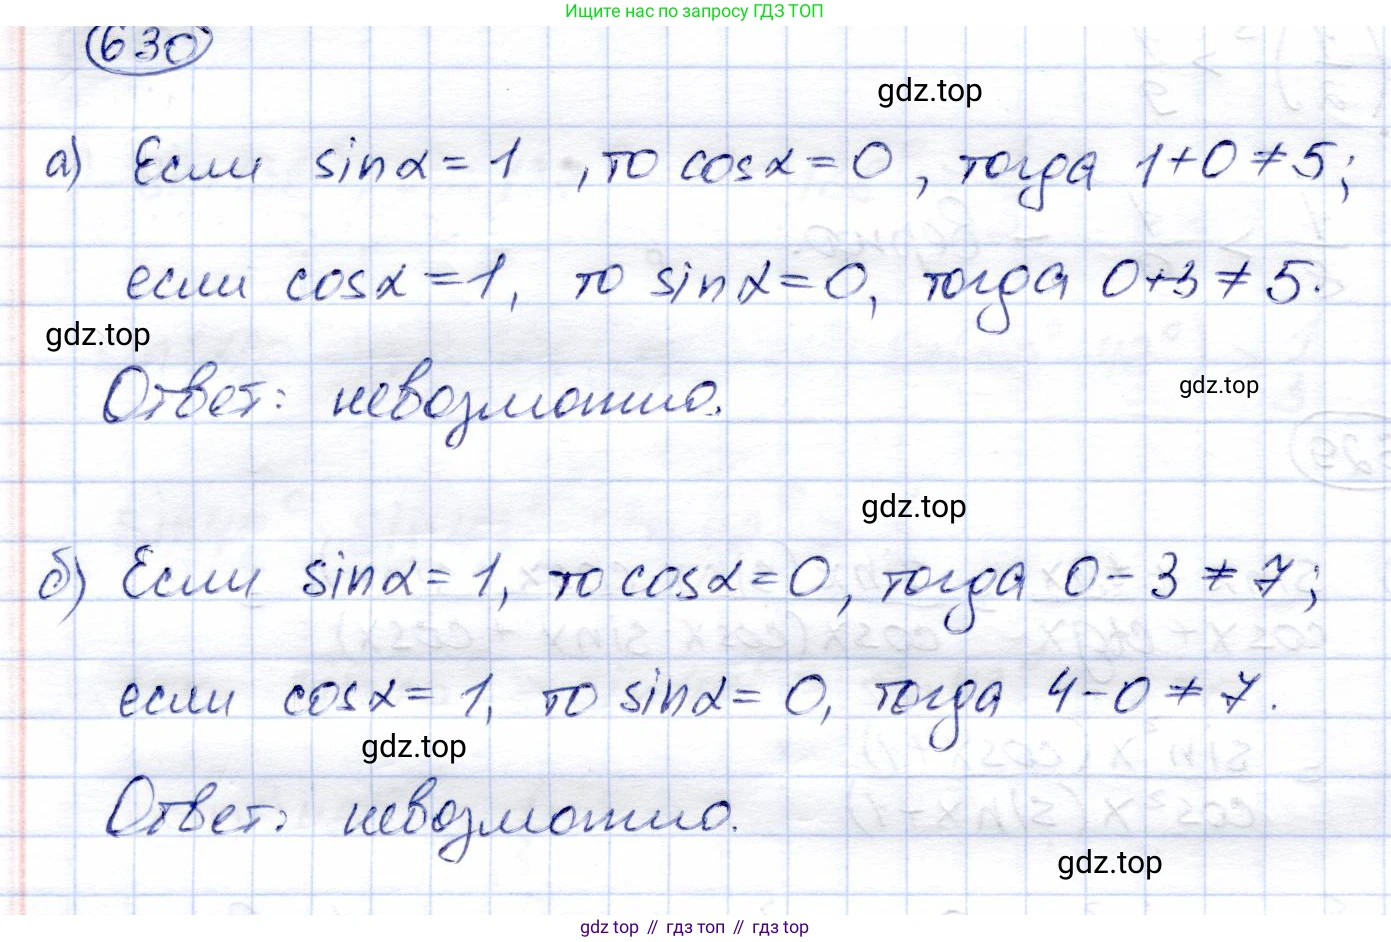 Ищите нас по запросу ГДЗ ТОП
630
gdz.top
а) Если sinα = 1, то cosα = 0, тогда 1+0 ≠ 5;
если cosα = 1, то sinα = 0, тогда 0+3 ≠ 5.
gdz.top
gdz.top
Ответ: невозможно.
gdz.top
б) Если sinα = 1, то cosα = 0, тогда 0 - 3 ≠ 7;
если cosα = 1, то sinα = 0, тогда 4 - 0 ≠ 7.
gdz.top
Ответ: невозможно.
gdz.top
gdz top // гдз топ // гдз top